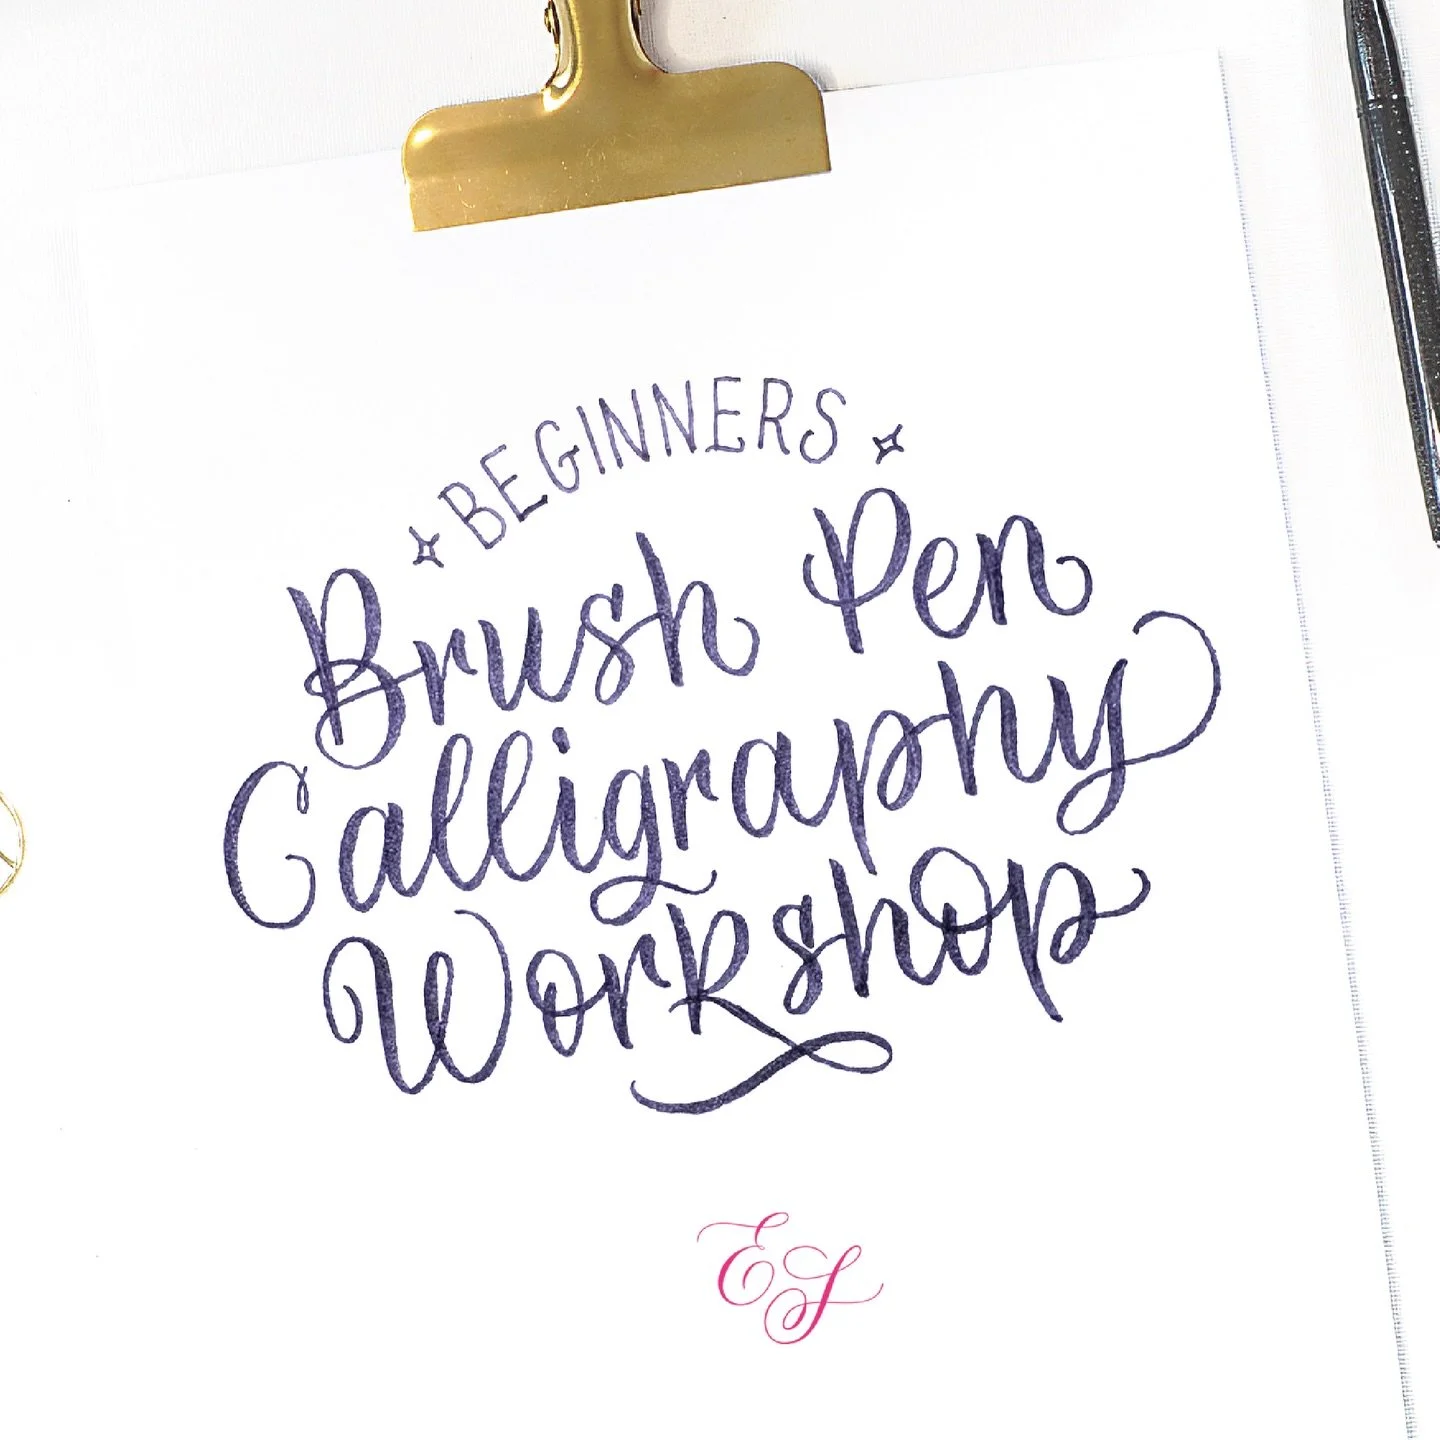 BEGINNERS
Brush Pen
Calligraphy
Workshop
ES